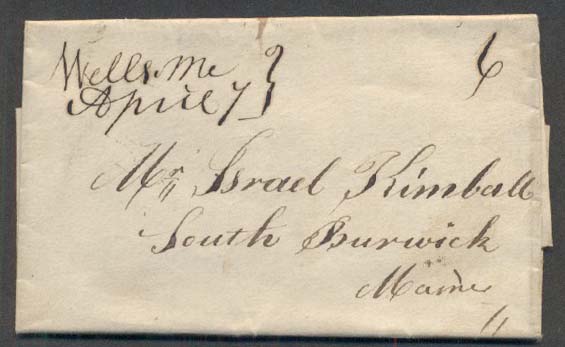 Wells. Me }
April 7
6
Mr. Israel Kimball
South Burwick
Maine